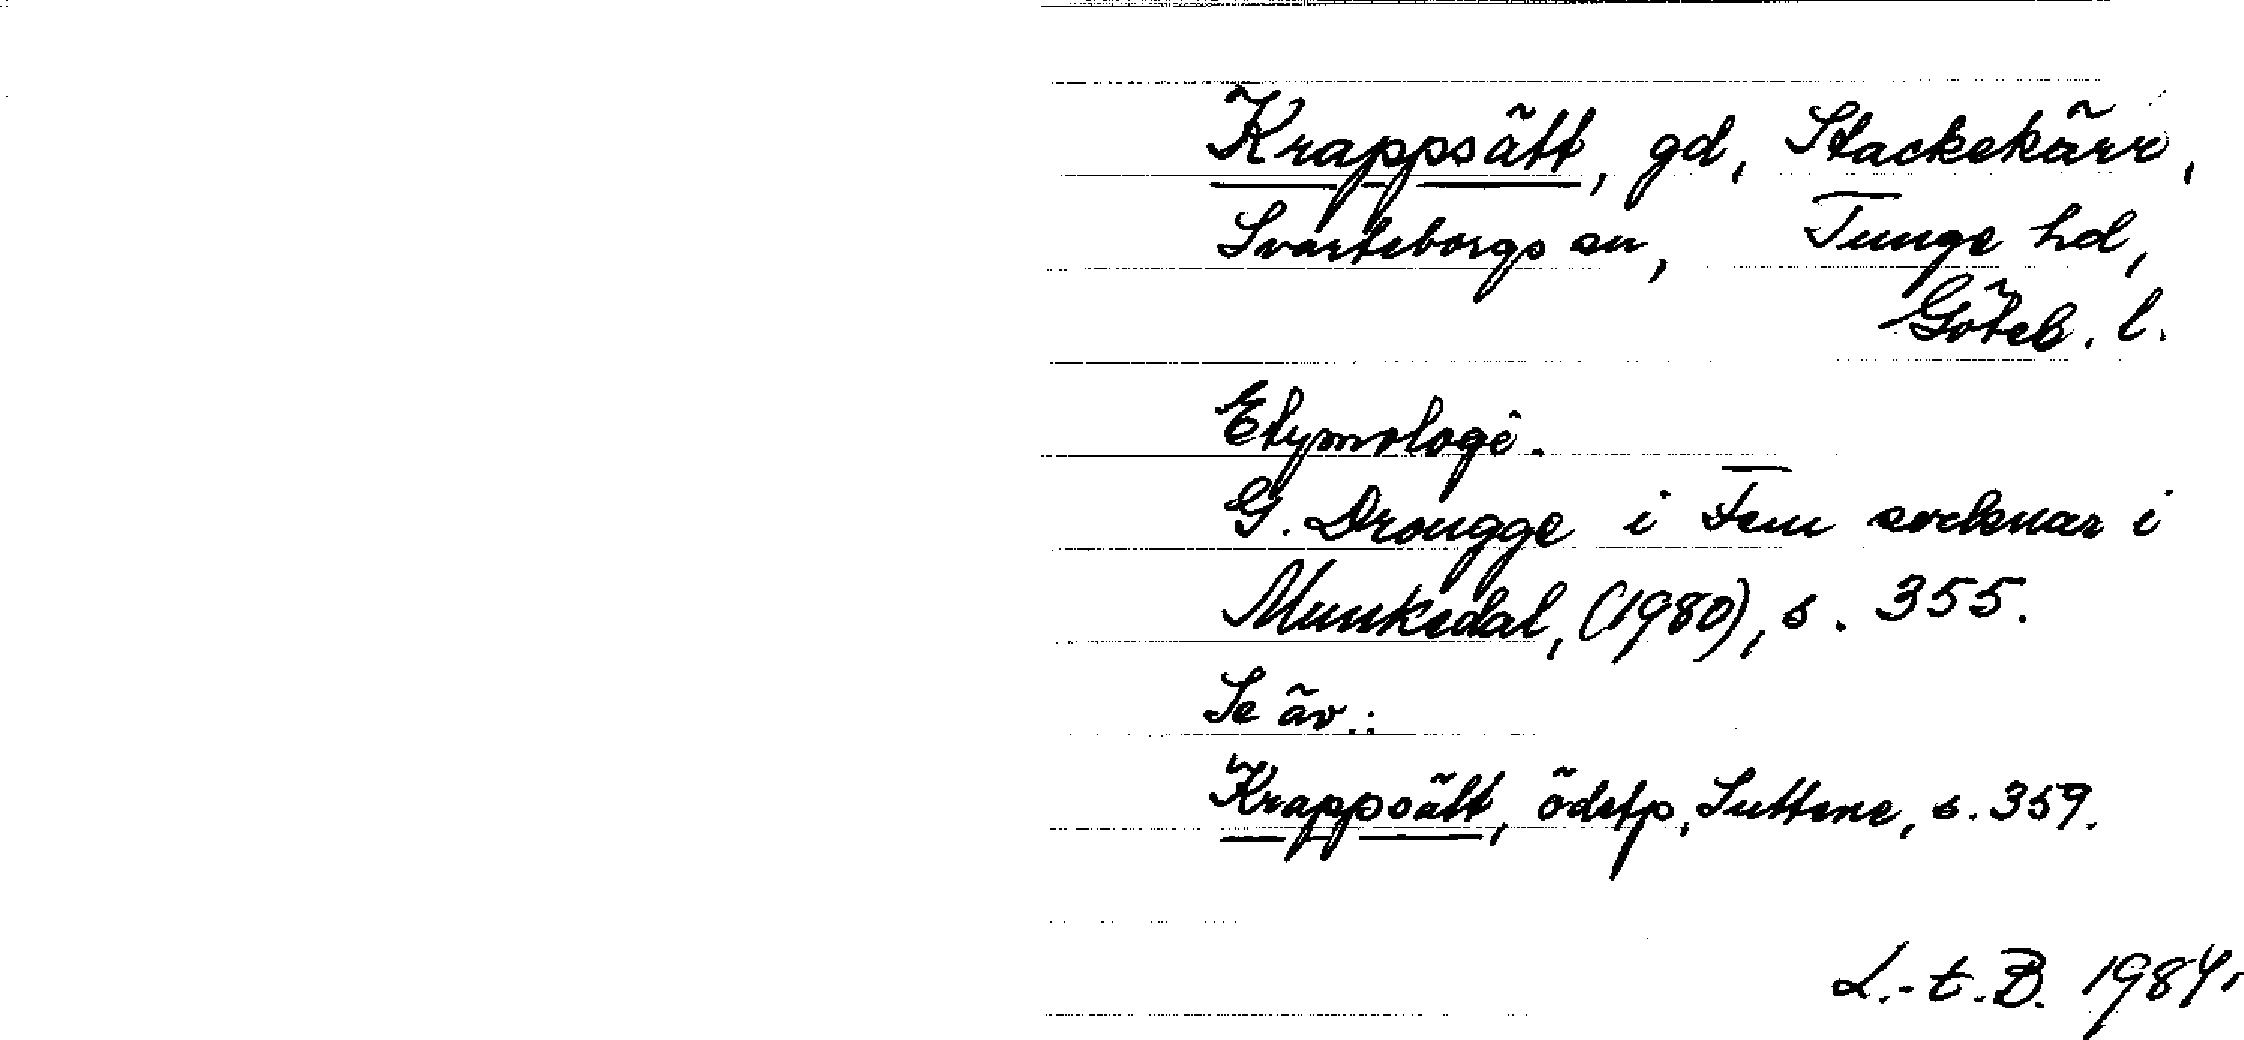 Krappsätt, gd, Stackekärr,
Svarteborgs sn, Tunge hd,
Göteb. l.
Etymologi.
G. Drougge i Fem socknar i
Munkedal, (1980), s. 355.
Se äv.:
Krappsätt, ödetp, Suttene, s. 359.
L.-t. B. 1984.